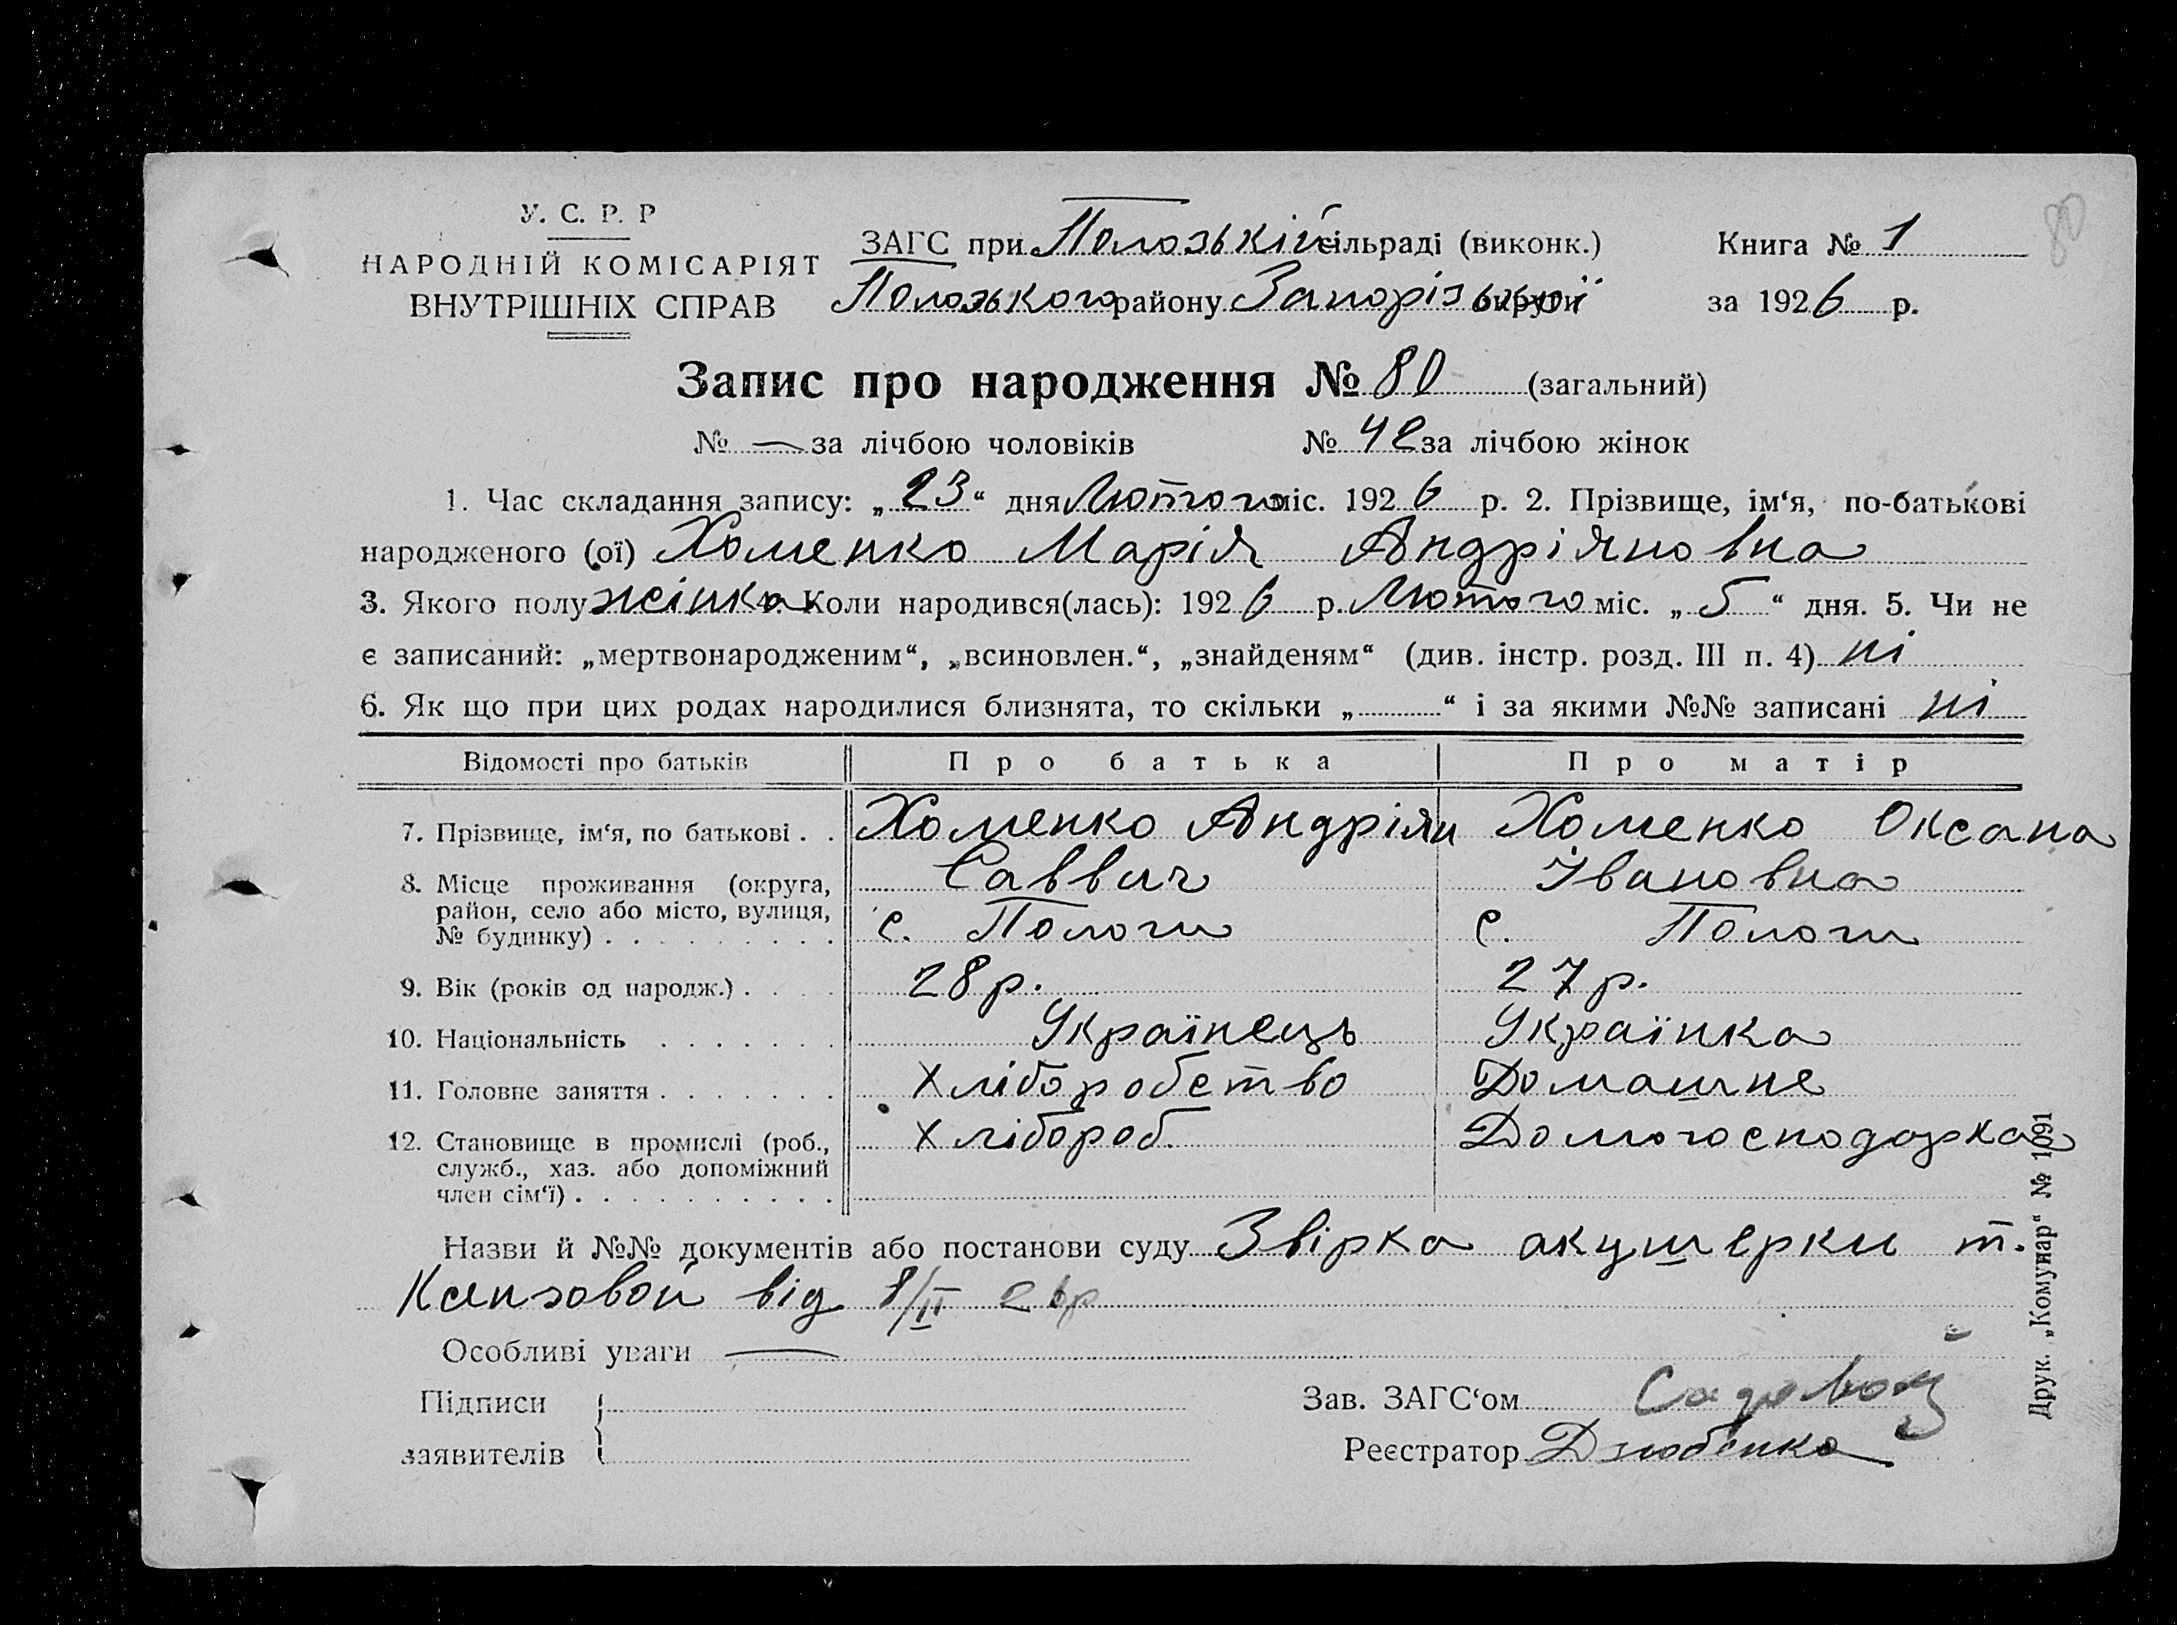 У. С. Р. Р
НАРОДНІЙ КОМІСАРІЯТ
ВНУТРІШНІХ СПРАВ
ЗАГС при Положькій сільраді (виконк.)
Положького району Запорізької округи
Книга № 1
за 1926 р.
80
Запис про народження № 80 (загальний)
№ — за лічбою чоловіків № 42 за лічбою жінок
1. Час складання запису: „23“ дня Лютого міс. 1926 р. 2. Прізвище, ім‘я, по-батькові
народженого (ої) Хоменко Марія Андріяновна
3. Якого полу жінка Коли народився(лась): 1926 р. Лютого міс. „5“ дня. 5. Чи не
є записаний: „мертвонародженим“, „всиновлен.“, „знайденям“ (див. інстр. розд. III п. 4) ні
6. Як що при цих родах народилися близнята, то скільки „ “ і за якими №№ записані ні
Відомості про батьків Про батька Про матір
7. Прізвище, ім‘я, по батькові . . Хоменко Андріян Хоменко Оксана
Саввич Івановна
8. Місце проживання (округа,
район, село або місто, вулиця,
№ будинку) . . . . . . . . . с. Пологи с. Пологи
9. Вік (років од народж.) . . . . 28 р. 27 р.
10. Національність . . . . . . . Українець Українка
11. Головне заняття . . . . . . . Хліборобство Домашне
12. Становище в промислі (роб.,
служб., хаз. або допоміжний
член сім‘ї) . . . . . . . . . . Хлібороб. Домогосподарка
Назви й №№ документів або постанови суду Звірка акушерки т.
від 8/II 26р
Особливі уваги —
Підписи
заявителів
Зав. ЗАГС‘ом
Реєстратор Дзюбенко
Друк. „Комунар“ № 1091